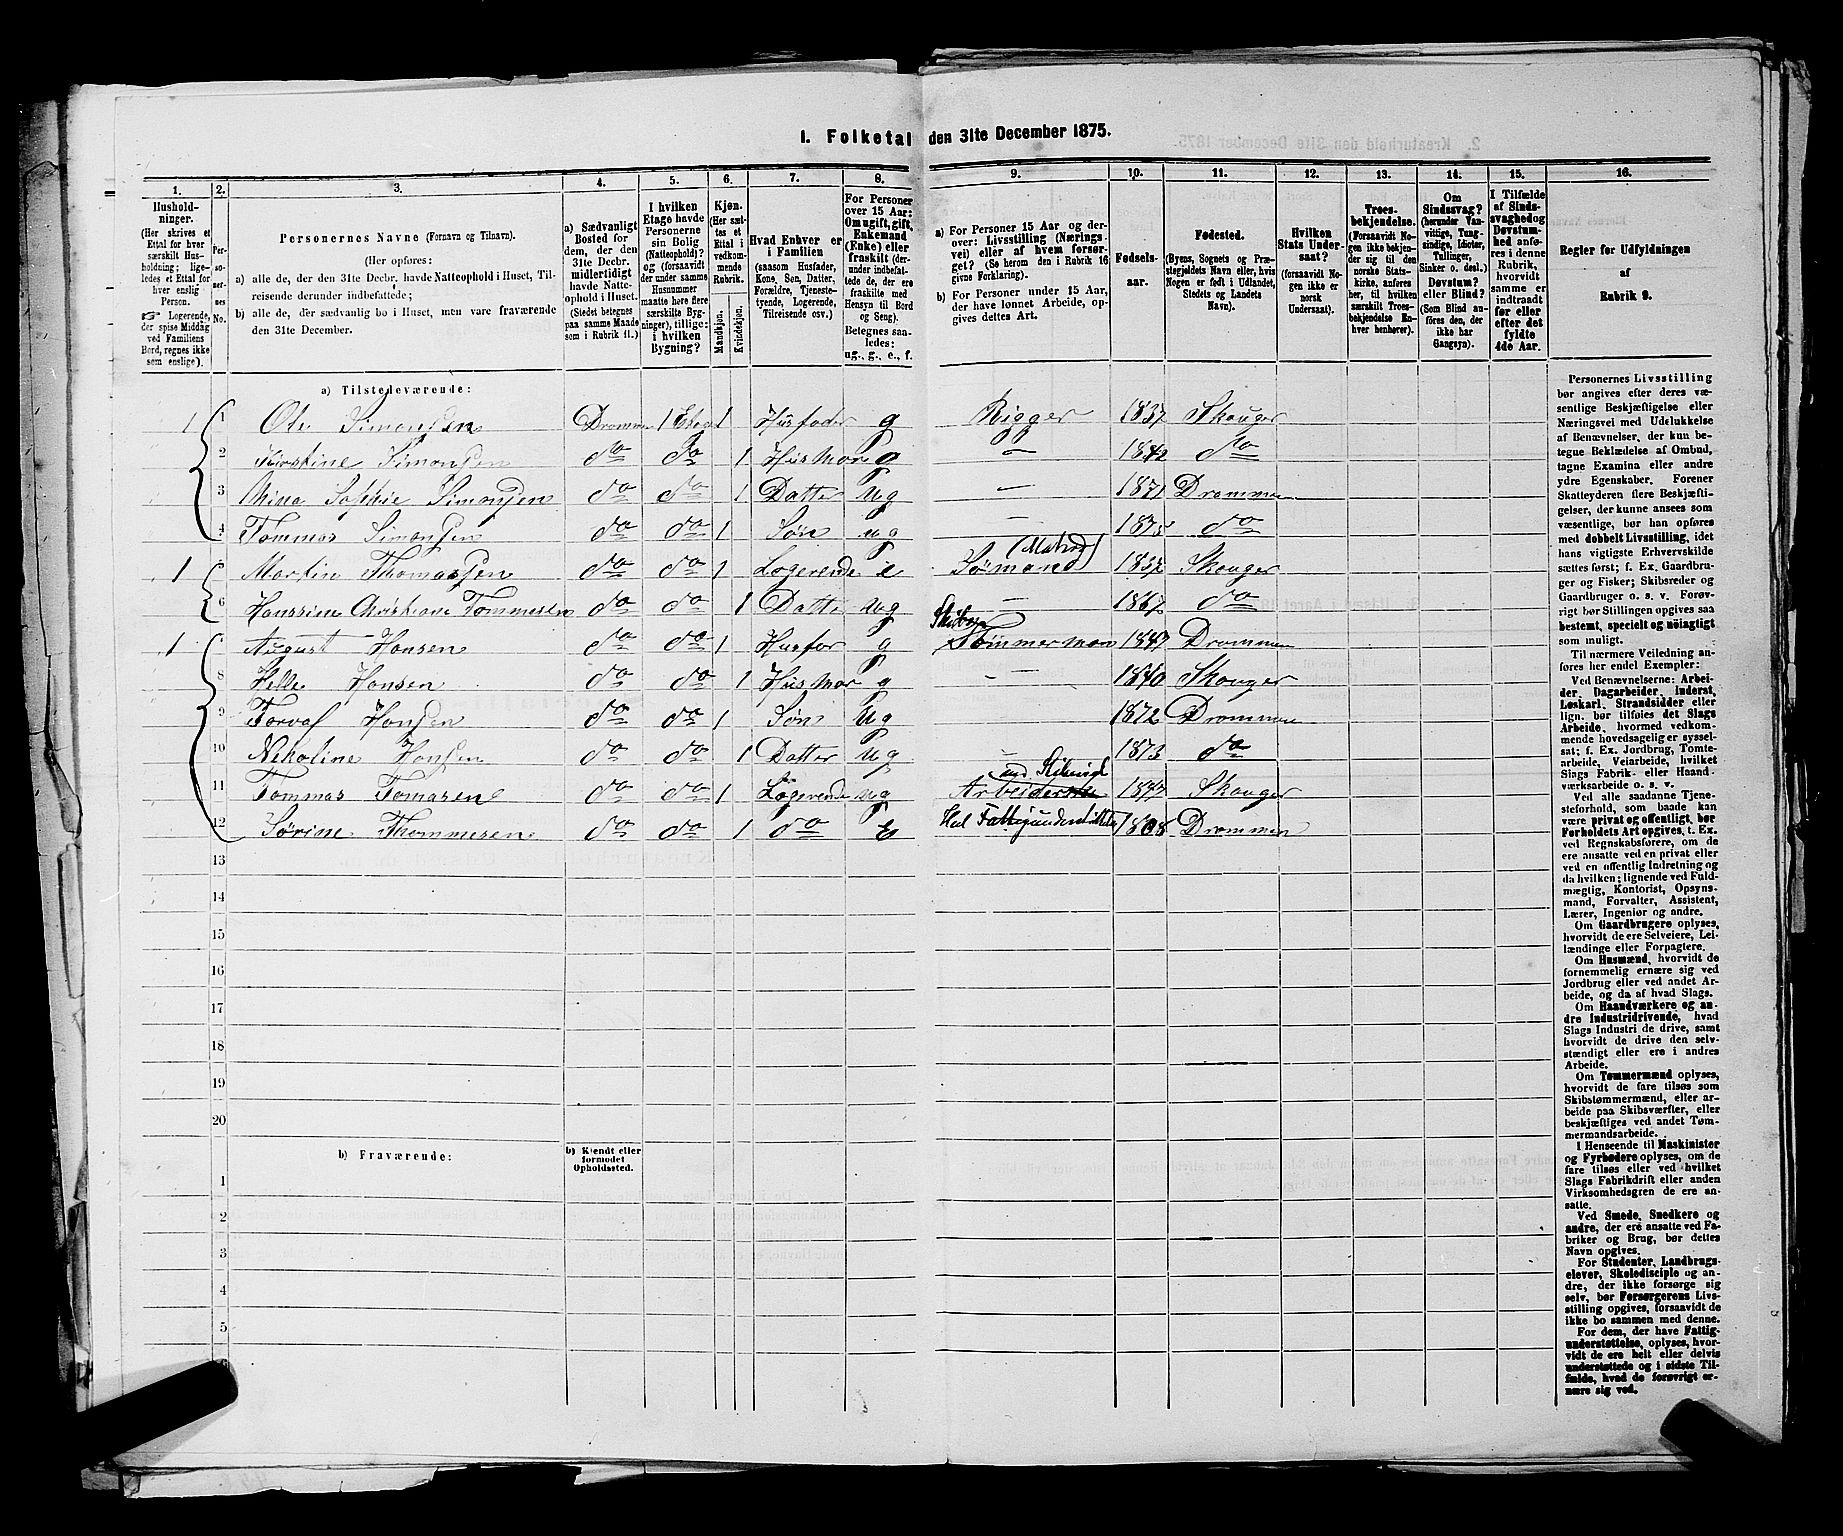 1. Folketal den 31te December 1875.
1. 2. 3. 4. 5. 6. 7. 8. 9. 10. 11. 12. 13. 14. 15. 16.
Hushold-
ninger.
(Her skrives et
Ettal for hver
særskilt Hus-
holdning; lige-
ledes et Ettal for
hver enslig
Person.
☞ Logerende,
der spise Middag
ved Familiens
Bord, regnes ikke
som enslige).
Per-
so-
ner-
nes
No.
Personernes Navne (Fornavn og Tilnavn).
(Her opføres:
a) alle de, der den 31te Decbr. havde Natteophold i Huset, Til-
reisende derunder indbefattede;
b) alle de, der sædvanlig bo i Huset, men vare fraværende
den 31te December.
a) Sædvanligt
Bosted for
dem, der den
31te Decbr.
midlertidigt
havde Natte-
ophold i Huset.
(Stedet betegnes
paa samme Maade
som i Rubrik 11.)
I hvilken
Etage havde
Personerne
sin Bolig
(Natteophold)?
og (forsaavidt
der under samme
Husnummer
maatte høre flere
særskilte Byg-
ninger), tillige:
i hvilken
Bygning?
Kjøn.
(Her sæt-
tes et
Ettal i
vedkom-
mende
Rubrik.
Mandkjøn.
Kvindekjøn.
Hvad Enhver er
i Familien
(saasom Husfader,
Kone, Søn, Datter,
Forældre, Tjeneste-
tyende, Logerende,
Tilreisende osv.)
For Personer
over 15 Aar:
Om ugift, gift,
Enkemand
(Enke) eller
fraskilt (der-
under indbefat-
tede de, der ere
fraskilte med
Hensyn til Bord
og Seng).
Betegnes saa-
ledes:
ug., g., e., f.
a) For Personer 15 Aar og der-
over: Livsstilling (Nærings-
vei) eller af hvem forsør-
get? (Se herom den i Rubrik 16
givne Forklaring).
b) For Personer under 15 Aar,
der have lønnet Arbeide, op-
gives dettes Art.
Fødsels-
aar.
Fødested.
(Byens, Sognets og Præ-
stegjeldets Navn eller, hvis
Nogen er født i Udlandet,
Stedets og Landets
Navn).
Hvilken
Stats Under-
saat?
(forsaavidt No-
gen ikke er
norsk
Undersaat).
Troes-
bekjendelse.
(Forsaavidt No-
gen ikke bekjen-
der sig til den
norske Stats-
kirke, anføres
her, til hvilken
særskilt Troes-
bekjendelse En-
hver henhører).
Om
Sindssvag?
(herunder Van-
vittige, Tung-
sindige, Idioter,
Tullinger,
Sinker o. desl.)
Døvstum?
eller Blind?
(Som Blind an-
føres den, der
ikke har
Gangsyn).
I Tilfælde
af Sinds-
svaghed og
Døvstum-
hed anfø-
res i denne
Rubrik,
hvorvidt
samme er
indtraadt
før eller
efter det
fyldte
4de Aar.
Regler for Udfyldningen
af
Rubrik 9.
a) Tilstedeværende:
1 1 Ole Simonsen Drammen 1 Etage 1 Husfader g Rigger 1837 Skouger
2 Kirstine Simonsen do do 1 Husmor g — 1842 do
3 Mina Sophie Simonsen do do 1 Datter ug — 1871 Drammen
4 Tommas Simonsen do do 1 Søn ug — 1875 do
(Matros)
1 Martin Thomassen do do 1 Logerende e Sømand 1837 Skouger
6 Hanssine Christiane Tommesen do do 1 Datter ug — 1867 do
Skibs
1 August Hansen do do 1 Husfar g Tømmerman 1847 Drammen
8 Helle Hansen do do 1 Husmor g — 1840 Skouger
9 Torvaf Hansen do do 1 Søn ug 1872 Drammen
10 Nekoline Hansen do do 1 Datter ug — 1873 do
11 Tommas Tomasen do do 1 Logerende ug Arbeider 1847 Skouger
12 Sørine Thommesen do do 1 do E Hel Fattigunderstøttelse 1808 Drammen
13
14
15
16
17
18
19
20
b) Fraværende:
b) Kjendt eller
formodet
Opholdssted.
1
2
3
4
5
Personernes Livsstilling
bør angives efter deres væ-
sentlige Beskjæftigelse eller
Næringsvei med Udelukkelse
af Benævnelser, der kun be-
tegne Beklædelse af Ombud,
tagne Examina eller andre
ydre Egenskaber. Forener
Skatteyderen flere Beskjæfti-
gelser, der kunne ansees som
væsentlige, bør han opføres
med dobbelt Livsstilling, idet
hans vigtigste Erhvervskilde
sættes først; f. Ex. Gaardbru-
ger og Fisker; Skibsreder og
Gaardbruger o. s. v. Forøv-
rigt bør Stillingen opgives saa
bestemt, specielt og nøiagtigt
som muligt.
Til nærmere Veiledning an-
føres her endel Exempler:
Ved Benævnelserne: Arbei-
der, Dagarbeider, Inderst,
Løskarl, Strandsidder eller
lign. bør tilføies det Slags
Arbeide, hvormed vedkom-
mende hovedsagelig er syssel-
sat; f. Ex. Jordbrug, Tomte-
arbeide, Veiarbeide, hvilket
Slags Fabrik- eller Haand-
værksarbeide o. s. v.
Ved alle saadanne Tjene-
steforhold, som baade kan
være privat og offentligt, bør
Forholdets Art opgives, t. Ex.
ved Regnskabsførere, om de
ere ansatte ved en privat eller
ved en offentlig Indretning og
da hvilken; lignende ved Fuld-
mægtig, Kontorist, Opsyns-
mand, Forvalter, Assistent,
Lærer, Ingeniør og andre.
Om Gaardbrugere oplyses,
hvorvidt de ere Selveiere, Lei-
lændinge eller Forpagtere.
Om Husmænd, hvorvidt de
fornemmelig ernære sig ved
Jordbrug eller ved andet Ar-
beide, og da af hvad Slags.
Om Haandværkere og an-
dre Industridrivende, hvad
Slags Industri de drive, samt
hvorvidt de drive den selv-
stændigt eller ere i andres
Arbeide.
Om Tømmermænd oplyses,
hvorvidt de fare tilsøs som
Skibstømmermænd, eller ar-
beide paa Skibsværfter, eller
beskjæftiges ved andet Tøm-
mermandsarbeide.
I Henseende til Maskinister
og Fyrbødere oplyses, om de
fare tilsøs eller ved hvilket
Slags Fabrikdrift eller anden
Virksomhedsgren de ere an-
satte.
Ved Smede, Snedkere og
andre, der ere ansatte ved Fa-
briker og Brug, bør dettes
Navn opgives.
For Studenter, Landbrugs-
elever, Skoledisciple og an-
dre, der ikke forsørge sig
selv, bør Forsørgerens Livs-
stilling opgives, forsaavidt de
ikke bo sammen med denne.
For dem, der have Fattig-
understøttelse, oplyses, hvor-
vidt de ere helt eller delvis
understøttede og i sidste Til-
fælde, hvad de forøvrigt er-
nære sig ved.